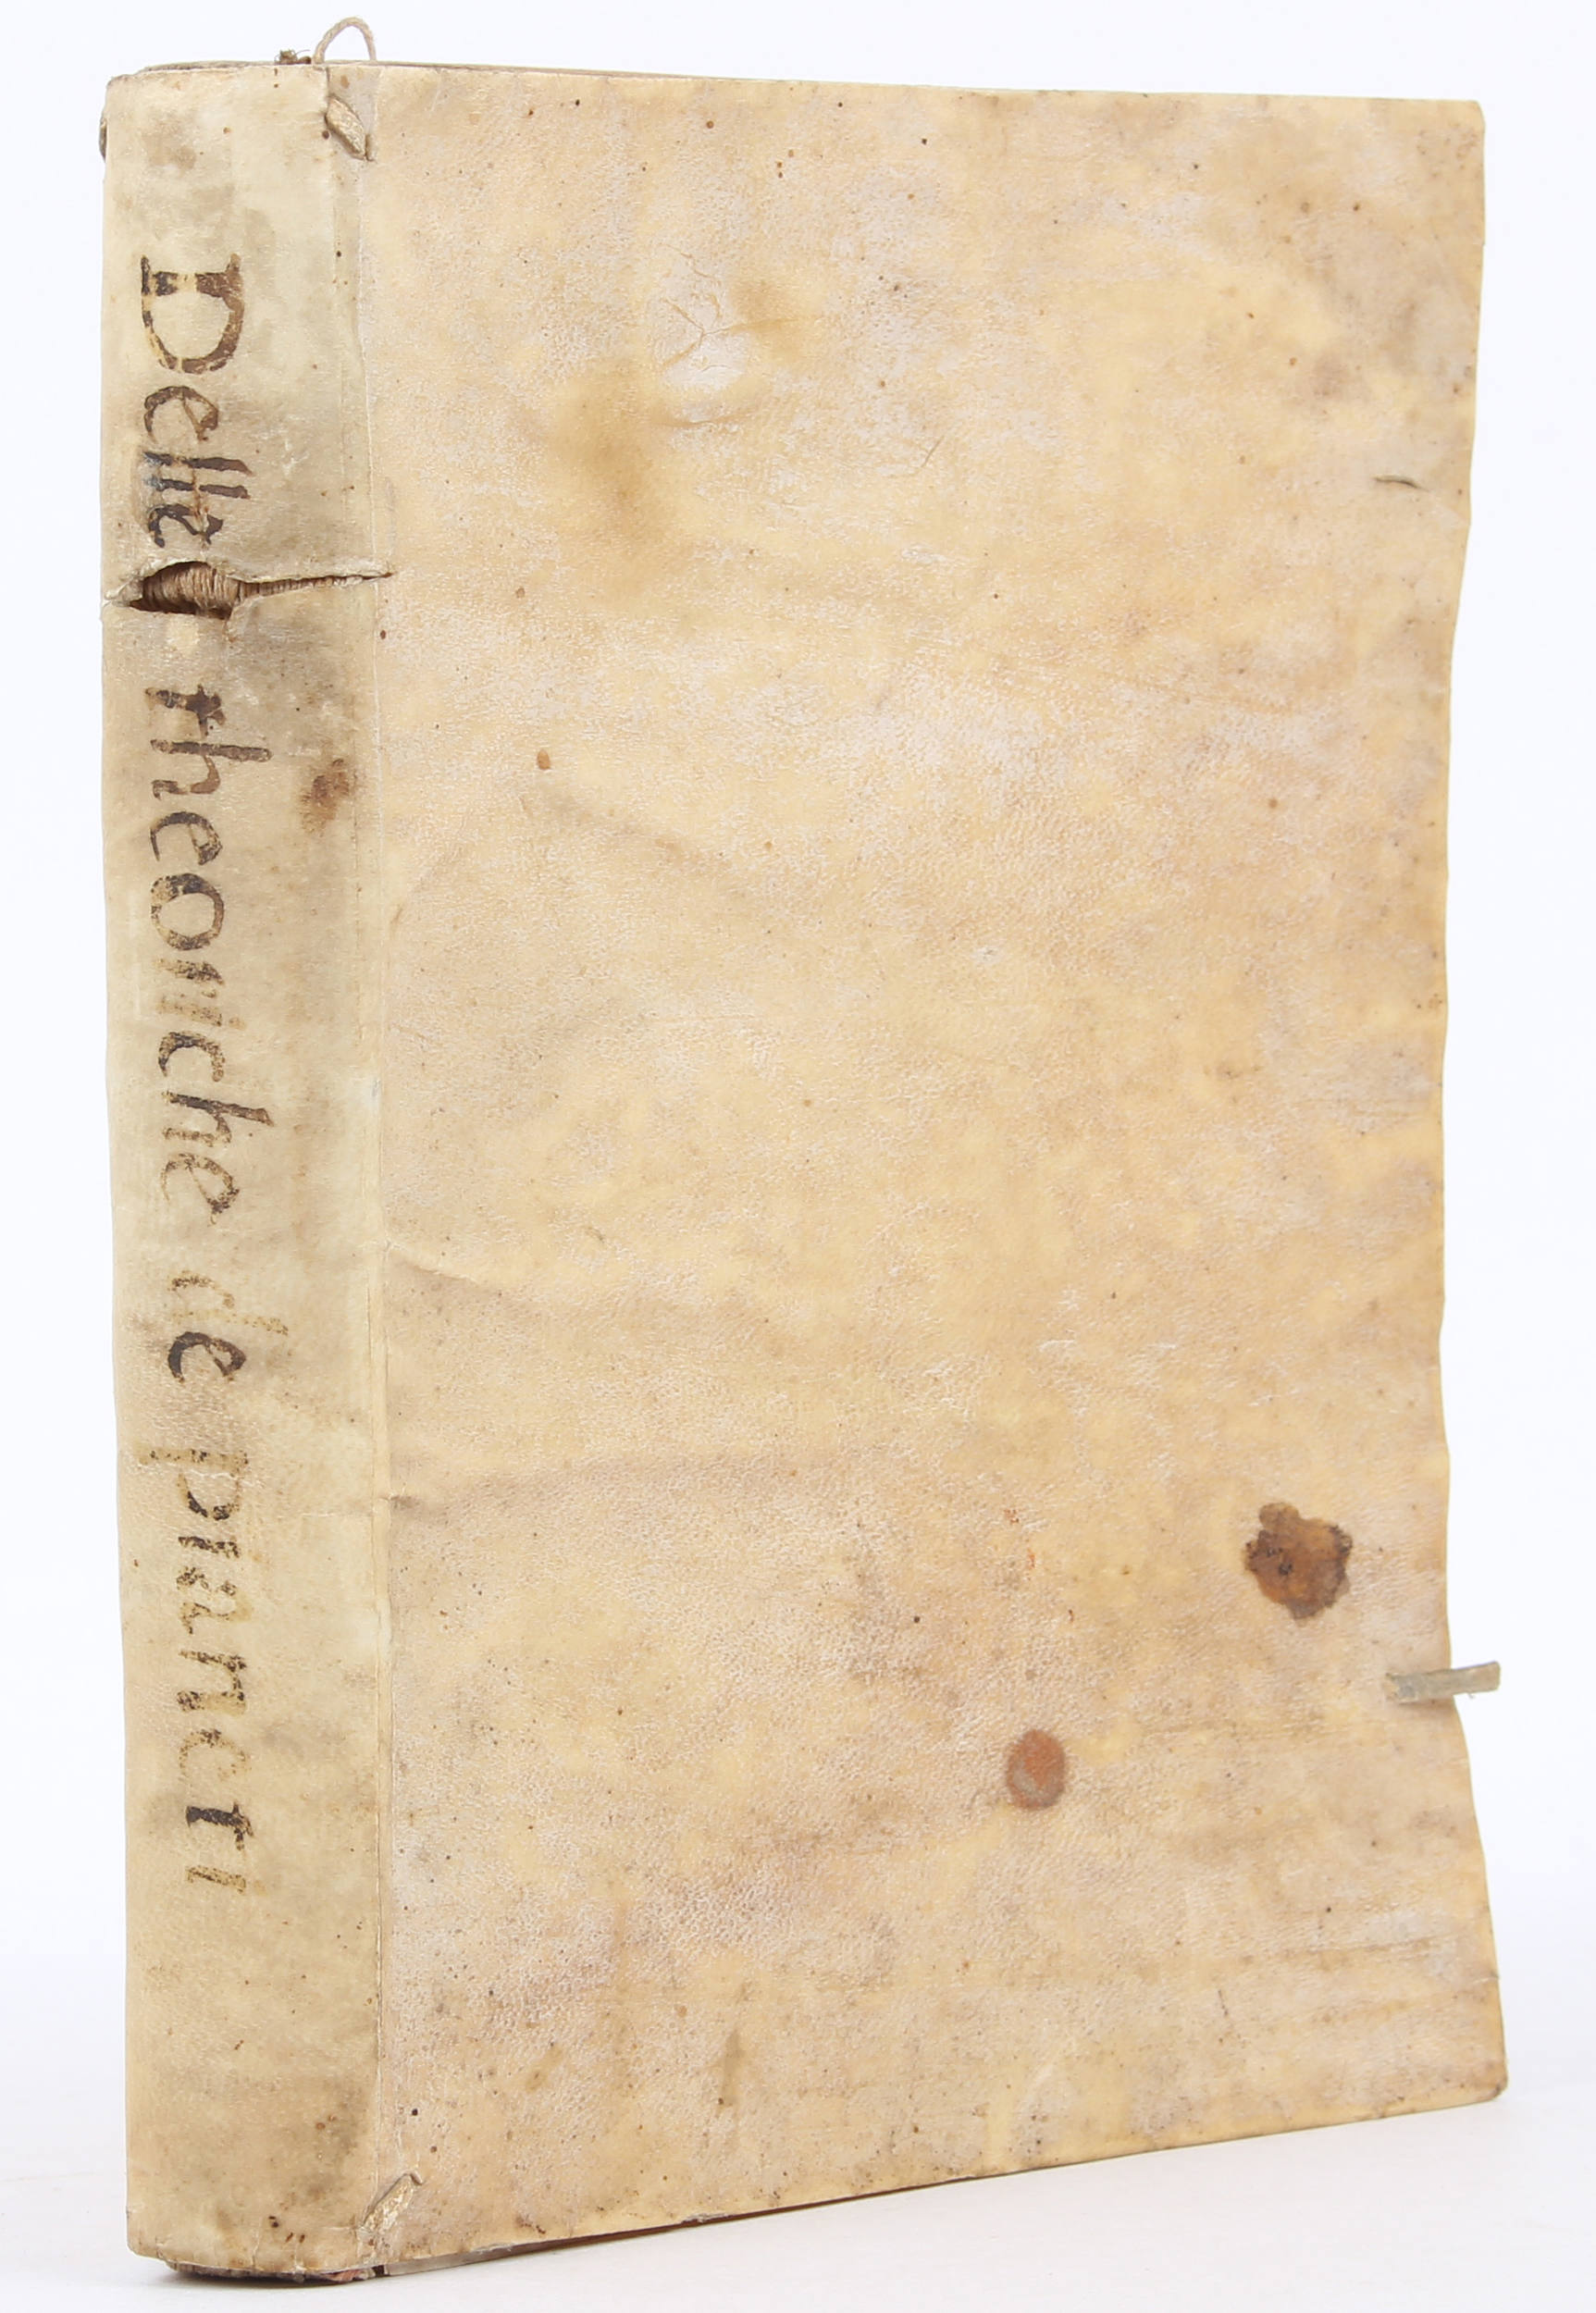 Delle theoriche de pianeti